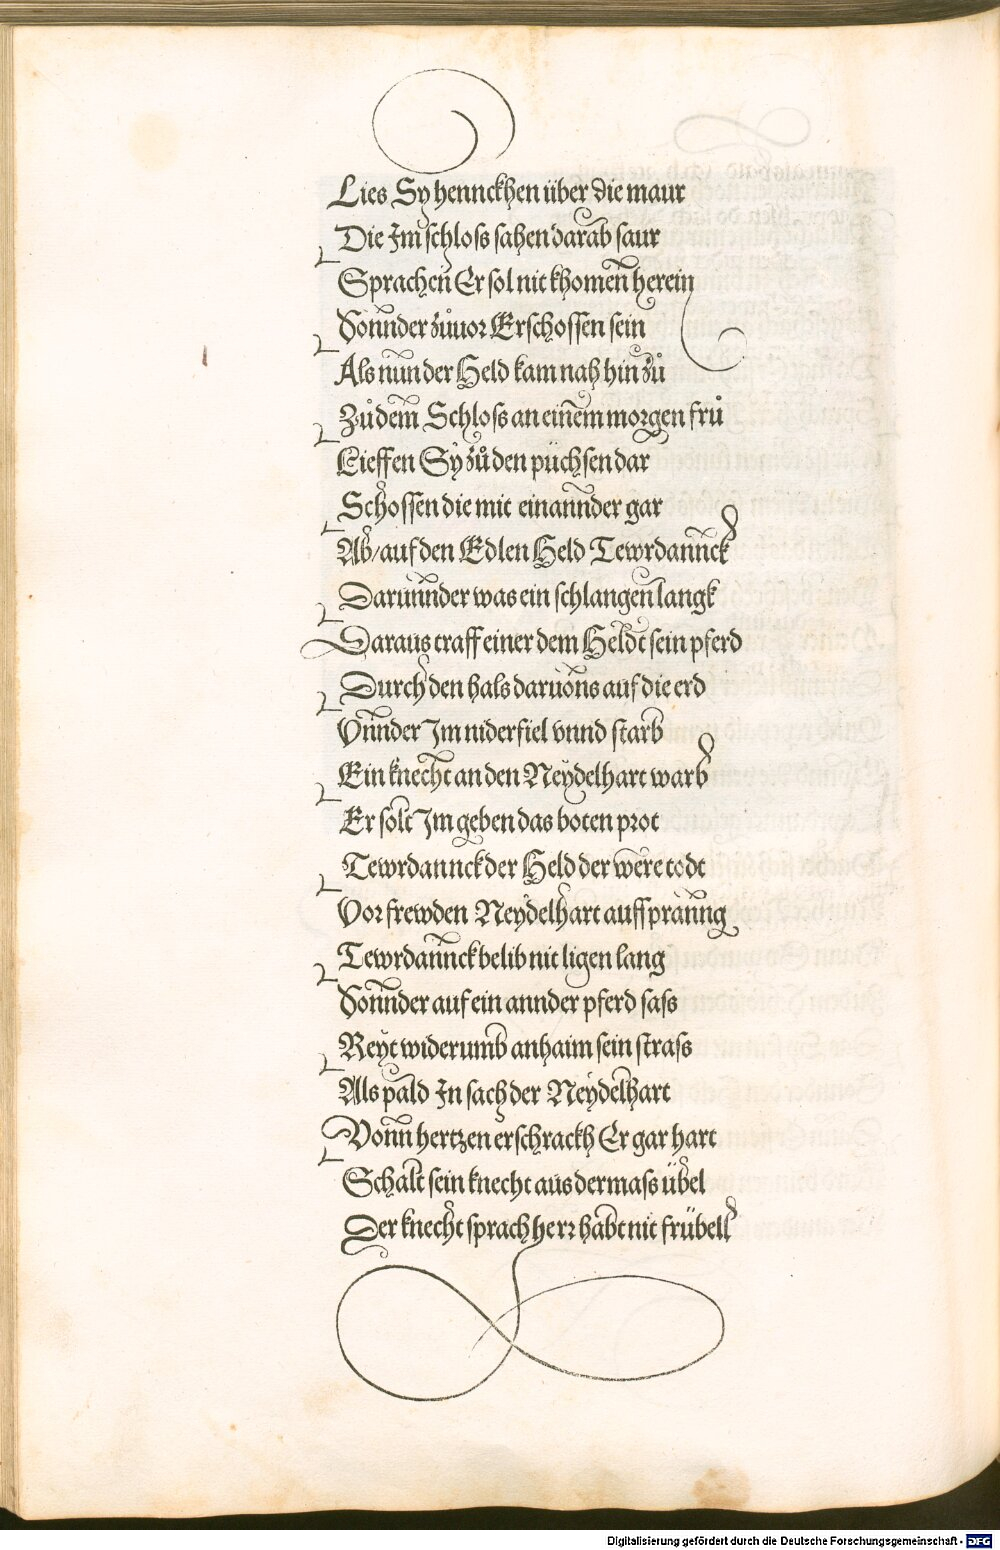 Lies Sy hennckhen über die maur
Die Im schloss sahen darab saur
Sprachen Er sol nit khomen herein
Sonnder zůuor Erschossen sein
Als nun der Held kam nah hin zů
Zů dem Schloss an einem morgen frů
Lieffen Sy zů den püchsen dar
Schossen die mit einannder gar
Ab/ auf den Edlen Held Tewrdannck
Darunnder was ein schlangen langk
Daraus traff einer dem Heldt sein pferd
Durch den hals daruons auf die erd
Vnnder Im niderfiel vnnd starb
Ein knecht an den Neydelhart warb
Er solt Im geben das boten prot
Tewrdannck der Held der were todt
Vor frewden Neydelhart auffsprannng
Tewrdannck belib nit ligen lang
Sonnder auf ein annder pferd sass
Reyt widerumb anhaim sein strass
Als pald In sach der Neydelhart
Vonn hertzen erschrackh Er gar hart
Schalt sein knecht aus dermass übel
Der knecht sprach herr habt nit frübell
Digitalisierung gefördert durch die Deutsche Forschungsgemeinschaft - DFG